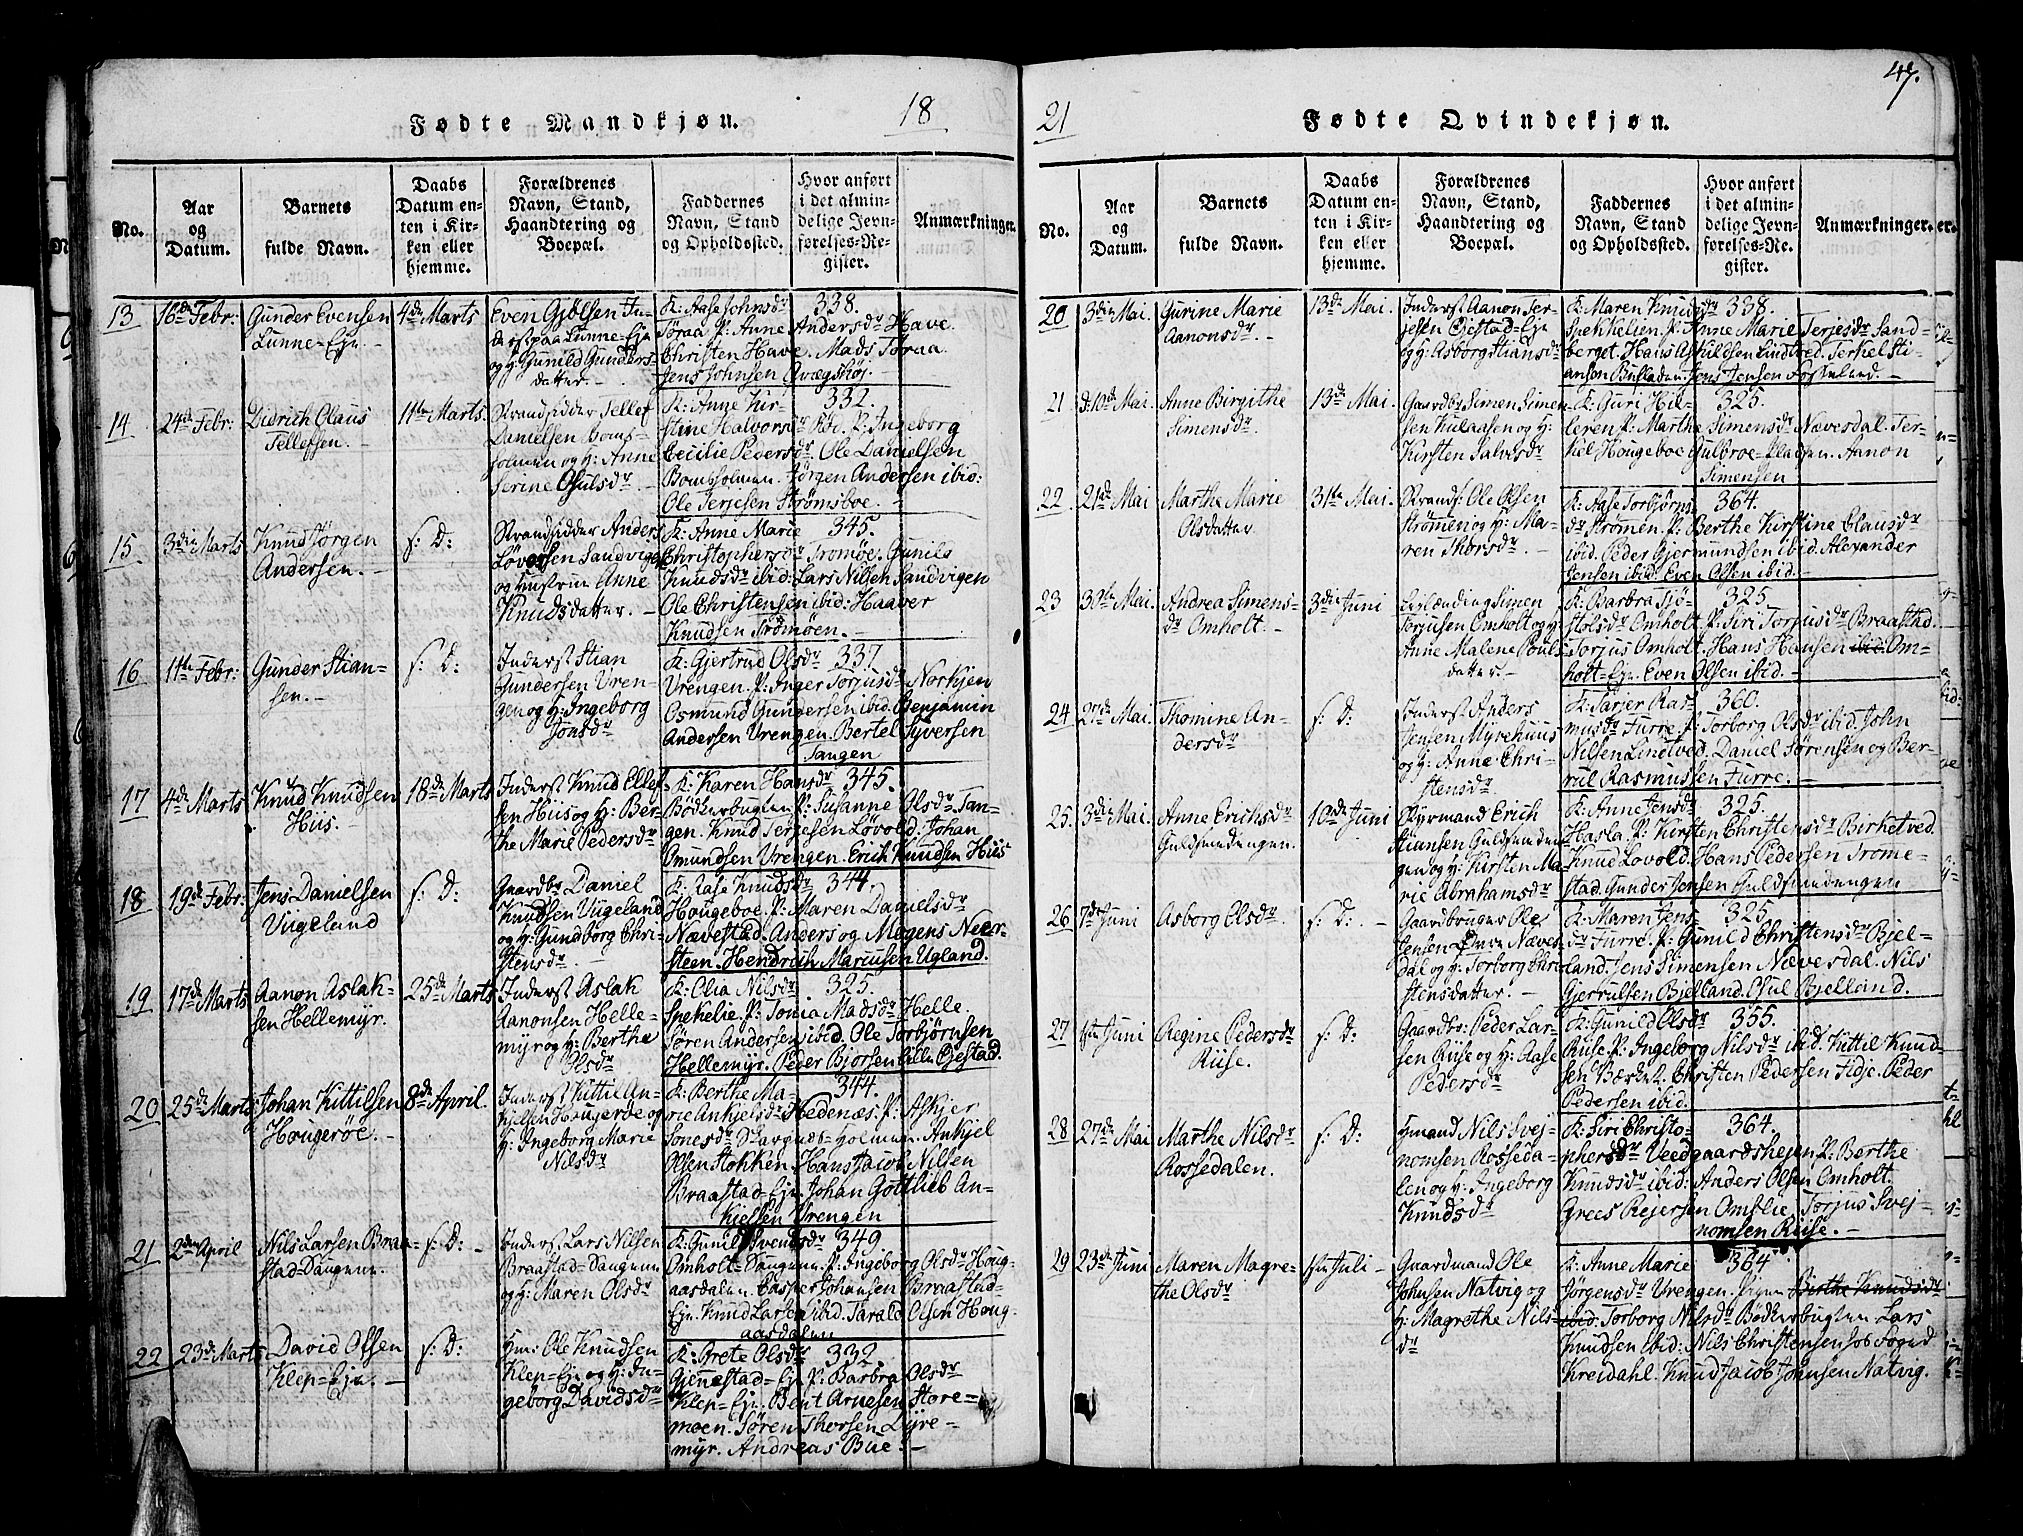 Fødte Mandkjøn.
18
No.
Aar
og
Datum.
Barnets
fulde Navn.
Daabs
Datum en-
ten i Kir-
ken eller
hjemme.
Forældrenes
Navn, Stand,
Haandtering og
Boepæl.
Faddernes
Navn, Stand
og Opholdssted.
Hvor anført
i det almin-
delige Jevn-
førelses-Re-
gister.
Anmærkninger.
13
16de Febr:
Gunder Evensen
Lunne-Eje. -
4de Marts
Even Gjølsen In-
derst paa Lunne-Eje
og H: Gunild Gunders-
datter. -
K: Aase Johnsdr 338.
Toraa. P: Anne Andersdr Have.
Christen Have. Mads Toraa
Jens Johnsen Qvægshej.
14
24de Febr:
Didrich Olaus
Tellefsen. -
11te Marts.
Strandsidder Tellef
Danielsen Boms-
holmen og H: Anne
Serine Osulsdr. -
K: Anne Kir- 332.
stine Halvorsdr ibi. P: Ingeborg
Cecilie Pedersdr. Ole Danielsen
Bomsholmen. Jørgen Andersen ibid:
Ole Terjesen Strømsboe. -
15
3die Marts
Knud Jørgen
Andersen. -
s: D:
Strandsidder Anders
Løvesen Sandvigen
og Hustrue Anne
Knudsdatter. -
K: Anne Marie 345.
Christophersdr Tromøe. Gunild
Knudsdr ibid: Lars Nilsen Sandvigen
Ole Christensen ibid: Haaver
Knudsen Tromøen. -
16
11te Febr:
Gunder Stian-
sen. -
s: D:
Inderst Stian
Gundersen Vren-
gen og H: Ingeborg
Jonsdr
K: Gjertrud Olsdr 337.
Vrengen. P: Inger Torjusdr Norhjen
Osmund Gundersen ibid. Benjamin
Andersen Vrengen. Bertel Syversen
Tangen
17
4de Marts
Knud Knudsen
Hiis. -
18de Marts
Inderst Knud Ellef-
sen Hiis og H: Ber-
the Marie Pedersdr
K: Karen Hansdr 345.
Bødkerbugten P: Susanne Olsdr Tan-
gen. Knud Terjesen Løvold. Johan
Omundsen Vrengen. Erich Knudsen Hiis
18
19de Febr:
Jens Danielsen
Vugeland
s: D:
Gaardbr Daniel
Knudsen Vugeland
og H: Gundborg Chri-
stensdr. -
K: Aase Knudsdr 344.
Hougeboe. P: Maren Danielsdr
Nævestad. Anders og Mogens Neer-
steen. Hendrich Mariusen Ugland.
19
17de Marts
Aanon Aslak-
sen Hellemyr.
25de Marts
Inderst Aslak
Aanonsen Helle-
myr og H: Berthe
Olsdr
K: Olia Nilsdr 325.
Spekelie. P: Tonia Madsdr Helle.
Søren Andersen ibid. Ole Torbjørnsen
Hellemyr. Peder Bjorsen lille Ojestad.
20
25de Marts
Johan Kittilsen
Hougerøe. -
8de April.
Inderst Kittil An-
kjelsen Hougerøe og
H: Ingeborg Marie
Nilsdr
K: Berthe Ma- 344.
rie Ankjelsdr Hedenæs. P: Askjer
Jonesdr Holmen. Ankjel
Olsen Stokken. Hans Jacob Nilsen
Braastad-Eje. Johan Gottlieb An-
kjelsen Vrengen
21
2den April
Nils Larsen Braa-
stad-Dangene.
s: D: -
Inderst Lars Nilsen
Braastad-Dangene
og H: Maren Olsdr
K: Gunild Svendsdr 349
Omholt-Dangene. P: Ingeborg Olsdr Houg-
aasdalen. Casper Johansen Braastad-
Eje. Knud Larsen ibid. Tarald Olsen Houg-
aasdalen
22
23de Marts
David Olsen
Klep-Eje. -
s: D:
Hm: Ole Knudsen
Klep-Eje og H: In-
geborg Davidsdr
K: Grete Olsdr 332.
Gjenestad-Eje. P: Barbra Olsdr
Klep-Eje. Bent Arnesen Store-
moen. Søren Thorsen Dyre-
myr. Andreas Bue. -
47.
21
Fødte Qvindekjøn.
No.
Aar
og
Datum.
Barnets
fulde Navn.
Daabs
Datum en-
ten i Kir-
ken eller
hjemme.
Forældrenes
Navn, Stand,
Haandtering og
Boepæl.
Faddernes
Navn, Stand
og Opholdssted.
Hvor anført
i det almin-
delige Jevn-
førelses-Re-
gister.
Anmærkninger.
20
3die Mai.
Gurine Marie
Aanonsdr. -
13de Mai.
Inderst Aanon Ter-
jesen Ojestad-Eje
og H: Asborg Stiansdr
K: Maren Knudsdr 338.
Spekkelien. P: Anne Marie Terjesdr Sand-
berget. Hans Askildsen Lindtved. Terkel Sti-
ansen Bukladen. Jens Jensen Fosseland. -
21
d: 10de Mai.
Anne Birgithe
Simensdr. -
13de Mai.
Gaardbr Simen Simen-
sen Kulaasen og H:
Kirsten Salvesdr
K: Guri Hil- 325.
leren. P: Marthe Simensdr Nævesdal. Ter-
kel Hougeboe Gulbroe-Pladsen. Aanon
Simensen
22
21de Mai
Marthe Marie
Olsdatter. -
31te Mai.
Strands: Ole Olsen
Strømen og H: Ma-
ren Thorsdr. -
K: Aase Torbjørns- 364.
dr Strømen. P: Berthe Kirstine Clausdr
ibid. Peder Gjermundsen ibid. Alexander
Jensen ibid. Even Olsen ibid. -
23
30te Mai.
Andrea Simens-
dr Omholt. -
3die Juni
Simen
Torjusen Omholt og H:
Anne Malene Pouls-
datter. -
K: Barbra Tjø- 325.
stolsdr Omholt. P: Siri Torjusdr Braastad.
Torjus Omholt. Hans Hansen ibid. Om-
holt-Eje. Even Olsen ibid. -
24
27de Mai.
Thomine An-
dersdr
s: D:
Inderst Anders
Jensen Myrehuus
og H: Anne Chri-
stensdr
K: Tarjer Ras- 360.
musdr Furre. P: Torborg Olsdr ibid. John
Nilsen Lindtved. Daniel Sørensen og Ber-
rul Rasmussen Furre. -
25.
3die Mai.
Anne Erichsdr
Guldsmedengen.
10de Juni
Styrmand Erich
Stiansen Guldsmeden-
gen og H: Kirsten Ma-
rie Abrahamsdr
K: Anne Jensdr 325.
Hasla. P: Kirsten Christensdr Birketved.
Knud Lovold. Hans Pedersen Trome-
stad. Gunder Jensen Guldsmedengen
26
7de Juni
Asborg Olsdr
s: D: -
Gaardbruger Ole
Jensen Øvre Næves-
dal og H: Torborg Chri-
stensdatter. -
K: Maren Jens- 325.
dr Furre. P: Gunild Christensdr Bjel-
land. Jens Simensen Nævesdal. Nils
Gjertulsen Bjelland. Osul Bjelland.
27
1ste Juni
Regine Pedersdr
Riise.
s: D:
Gaardbr: Peder Lar-
sen Riise og H: Aase
Pedersdr
K: Gunild Olsdr 355.
Riise. P: Ingeborg Nilsdr ibid. Kittil Knud-
sen Bærket. Christen Pedersen Fidje. Peder
Pedersen ibid.
28
27de Mai
Marthe Nilsdr
Rossedalen.
s: D:
Hmand Nils Svej-
nomsen Rosseda-
len og H: Ingeborg
Knudsdr
K: Siri Christo- 364.
phersdr Veedgaardshejen. P: Berthe
Knudsdr ibid: Anders Olsen Omholt.
Grees Rejersen Omslie. Torjus Svej-
nomsen Riise. -
29
23de Juni
Maren Magre-
the Olsdr
1ste Juli -
Gaardmand Ole
Johnsen Natvig og
H: Magrethe Nils-
dr
K: Anne Marie 364
Jørgensdr Vrengen. Pigen Berthe Knudsdr
ibid. Torborg Nilsdr Bødkerbugten Lars
Knudsen ibid: Nils Christensen Sogned
Kreidahl. Knud Jacob Johnsen Natvig.